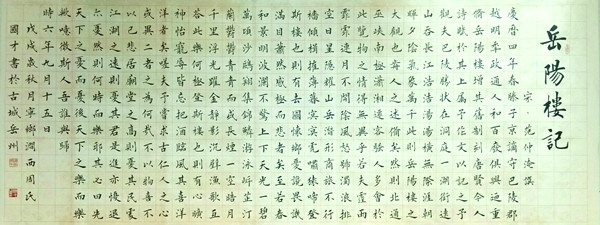 岳陽樓記
宋 范仲淹撰
慶曆四年春滕子京謫守巴陵郡
越明年政通人和百廢俱興迺重
修岳陽樓增其舊制刻唐賢今人
詩賦於其上屬予作文以記之予
觀夫巴陵勝狀在洞庭一湖銜遠
山吞長江浩浩湯湯橫無際涯朝
暉夕陰氣象萬千此則岳陽樓之
大觀也前人之述備矣然則北通
巫峽南極瀟湘遷客騷人多會於
此覽物之情得無異乎若夫霪雨
霏霏連月不開陰風怒號濁浪排
空日星隱耀山岳潛形商旅不行
檣傾楫摧薄暮冥冥虎嘯猿啼登
斯樓也則有去國懷鄉憂讒畏譏
滿目蕭然感極而悲者矣至若春
和景明波瀾不驚上下天光一碧
萬頃沙鷗翔集錦鱗游泳岸芷汀
蘭鬱鬱青青而或長煙一空皓月
千里浮光躍金靜影沉璧漁歌互
答此樂何極登斯樓也則有心曠
神怡寵辱皆忘把酒臨風其喜洋
洋者矣嗟夫予嘗求古仁人之心
或異二者之為何哉不以物喜不
以己悲居廟堂之高則憂其民處
江湖之遠則憂其君是進亦憂退
亦憂然則何時而樂耶其必曰先
天下之憂而憂後天下之樂而樂
歟噫微斯人吾誰與歸
時六年九月十五日
戊戌歲秋月寧鄉澗西周氏
國才書於古城岳州